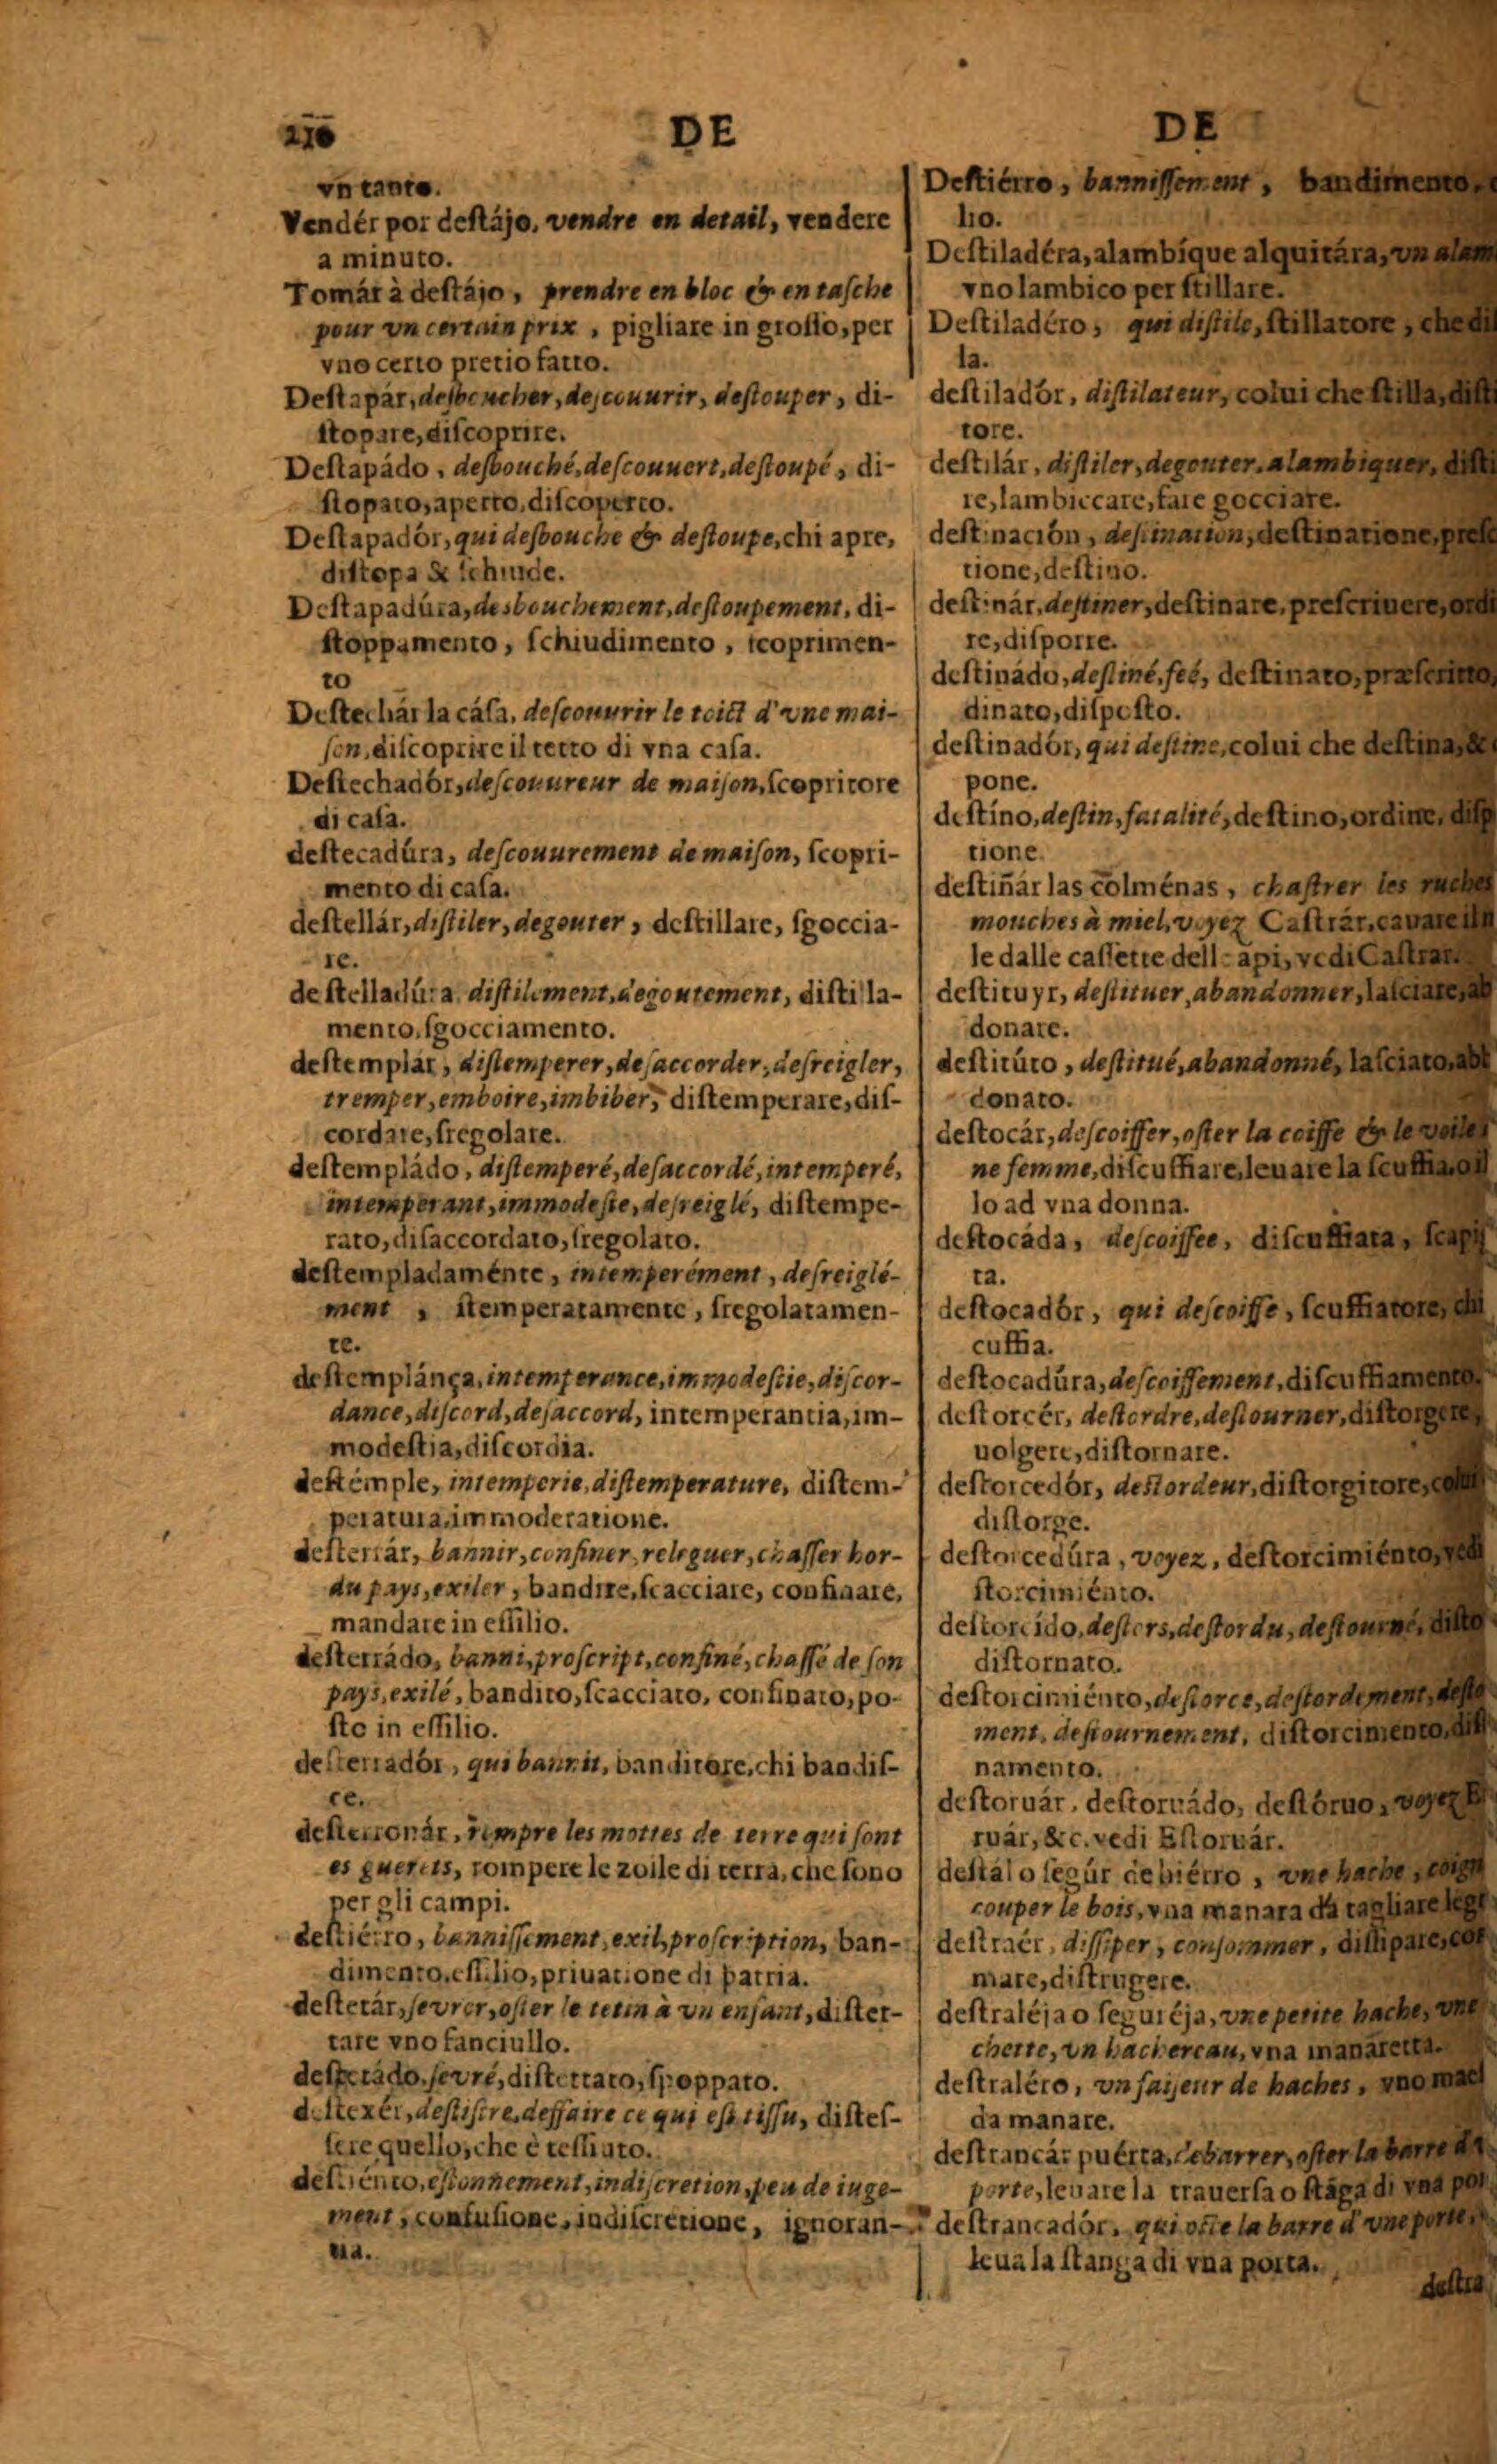 DE
vn tanto.
Vendér por deſtájo, vendre en detail, vendere
a minuto.
Tomár à deſtájo, prendre en bloc & en taſche
pour vn certain prix, pigliare in groſſo, per
vno certo pretio fatto.
Deſtapár, deſboucher, deſcouurir, deſtouper, di-
ſtopare, diſcoprire.
Deſtapádo, deſbouché, deſcouuert, deſtoupé, di-
ſtopato, aperto, diſcoperto.
Deſtapadór, qui deſbouche & deſtoupe, chi apre,
diſtopa & ſchiude.
Deſtapadúra, desbouchement, deſtoupement, di-
ſtoppamento, ſchiudimento, ſcoprimen-
to
Deſtechár la cáſa, deſcouurir le toict d'vne mai-
ſon, diſcoprire il tetto di vna caſa.
Deſtechadór, deſcouureur de maiſon, ſcopritore
di caſa.
deſtecadúra, deſcouurement de maiſon, ſcopri-
mento di caſa.
deſtellár, diſtiler, degouter, deſtillare, ſgoccia-
re.
deſtelladúra, diſtilement, degoutement, diſtilla-
mento, ſgocciamento.
deſtemplár, diſtemperer, deſaccorder, deſreigler,
tremper, emboire, imbiber, diſtemperare, diſ-
cordare, ſregolare.
deſtempládo, diſtemperé, deſaccordé, intemperé,
intemperant, immodeſte, deſreiglé, diſtempe-
rato, diſaccordato, ſregolato.
deſtempladaménte, intemperément, deſreiglé-
ment, ſtemperatamente, ſregolatamen-
te.
deſtemplánça, intemperance, immodeſtie, diſcor-
dance, diſcord, deſaccord, intemperantia, im-
modeſtia, diſcordia.
deſtémple, intemperie, diſtemperature, diſtem-
peratura, immoderatione.
deſterrár, bannir, confiner, releguer, chaſſer hor-
du pays, exiler, bandire, ſcacciare, confinare,
mandare in eſſilio.
deſterrádo, banni, proſcript, confiné, chaſſé de ſon
pays, exilé, bandito, ſcacciato, confinato, po-
ſto in eſſilio.
deſterradór, qui bannit, banditore, chi bandiſ-
ce.
deſterronár, rompre les mottes de terre qui ſont
es guerets, rompere le zoile di terra, che ſono
per gli campi.
deſtiérro, banniſſement, exil, proſcription, ban-
dimento, eſſilio, priuatione di patria.
deſtetár, ſevrer, oſter le tetin à vn enfant, diſtet-
tare vno fanciullo.
deſtetádo, ſevré, diſtettato, ſpoppato.
deſtexér, deſtiſtre, deffaire ce qui eſt tiſſu, diſteſ-
ſere quello, che è teſſiuto.
deſtiénto, eſtonnement, indiſcretion, peu de iuge-
ment, confuſione, indiſcretione, ignoran-
tia.
DE
Deſtiérro, banniſſement, bandimento,
lio.
Deſtiladéra, alambíque alquitára, vn alam
vno lambico per ſtillare.
Deſtiladéro, qui diſtile, ſtillatore, che diſ
la.
deſtiladór, diſtilateur, colui che ſtilla, diſti
tore.
deſtilár, diſtiler, degouter, alambiquer, diſti
re, lambiccare, fare gocciare.
deſtinación, deſtination, deſtinatione, preſc
tione, deſtino.
deſtinár, deſtiner, deſtinare, preſcriuere, ordi
re, diſporre.
deſtinádo, deſtiné, feé, deſtinato, præſcritto,
dinato, diſpoſto.
deſtinadór, qui deſtine, colui che deſtina, &
pone.
deſtíno, deſtin, fatalité, deſtino, ordine, diſp
tione.
deſtiñár las colménas, chaſtrer les ruches
mouches à miel, voyez Caſtrár, cauare il m
le dalle caſſette delle api, vedi Caſtrar.
deſtituyr, deſtituer, abandonner, laſciare, ab
donare.
deſtitúto, deſtitué, abandonné, laſciato, abb
donato.
deſtocár, deſcoiffer, oſter la coiffe & le voile
ne femme, diſcuffiare, leuare la ſcuffia, o il
lo ad vna donna.
deſtocáda, deſcoiffee, diſcuffiata, ſcapi
ta.
deſtocadór, qui deſcoiffe, ſcuffiatore, chi
cuffia.
deſtocadúra, deſcoiffement, diſcuffiamento.
deſtorcér, deſtordre, deſtourner, diſtorgere,
uolgere, diſtornare.
deſtorcedór, deſtordeur, diſtorgitore, colui
diſtorge.
deſtorcedúra, voyez, deſtorcimiénto, vedi
ſtorcimiénto.
deſtorcído, deſtors, deſtordu, deſtourné, diſto
diſtornato.
deſtorcimiénto, deſtorce, deſtordement, deſto
ment, deſtournement, diſtorcimento, diſt
namento.
deſtoruár, deſtoruádo, deſtóruo, voyez E
ruár, &c. vedi Eſtoruár.
deſtál o ſegúr de hiérro, vne hache, coign
couper le bois, vna manara da tagliare leg
deſtraér, diſſiper, conſommer, diſſipare, con
mare, diſtrugere.
deſtraléja o ſeguréja, vne petite hache, vne
chette, vn hachereau, vna manaretta.
deſtraléro, vn faiſeur de haches, vno mae
da manare.
deſtrancár puérta, debarrer, oſter la barre d'v
porte, leuare la trauerſa o ſtága di vna por
deſtrancadór, qui oſte la barre d'vne porte,
leua la ſtanga di vna porta.
deſtra